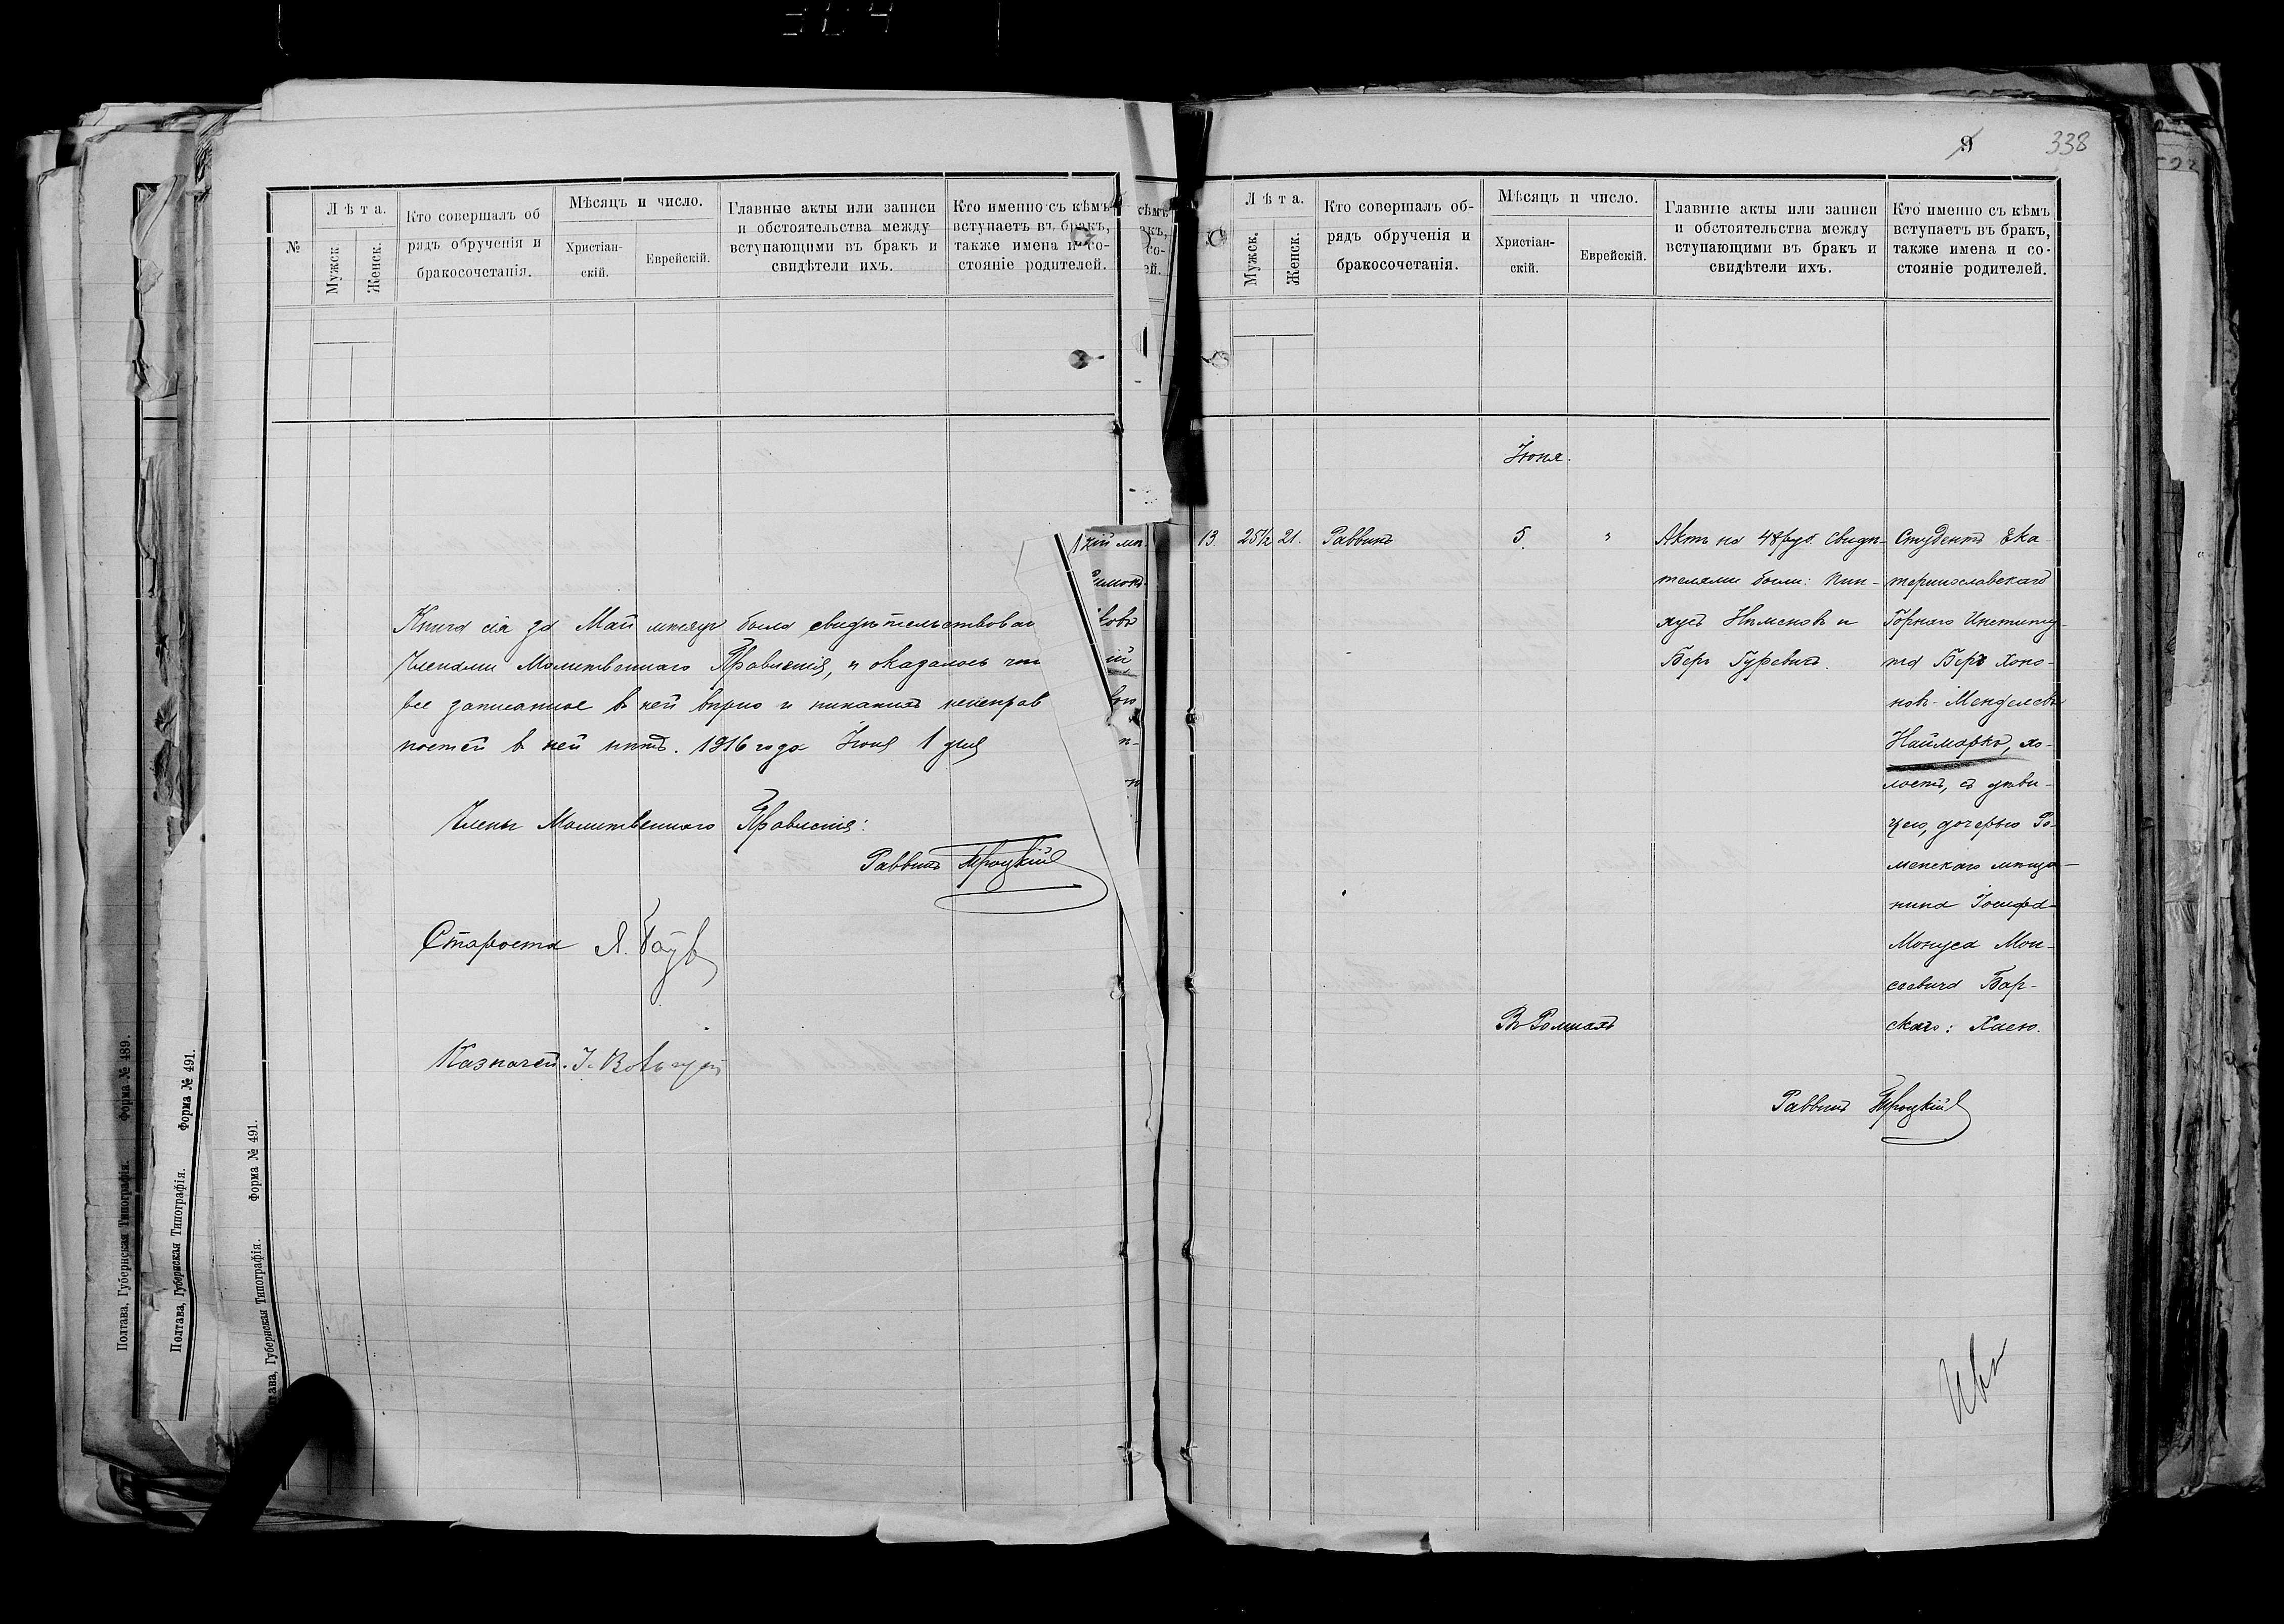 №
Лѣта.
Мужск
Женск.
Кто совершалъ об
рядъ обрученія и
бракосочетанія.
Мѣсяцъ и число.
Христіан-
скій.
Еврейскій.
Главные акты или записи
и обстоятельства между
вступающими въ бракъ и
свидѣтели ихъ.
Кто именно съ кѣмъ
вступаетъ въ бракъ,
также имена и со-
стояніе родителей.
Книга сія за Май мѣсяцъ была свидѣтельствован
Членами Молитвеннаго Правленія, и оказалось что
все записанное въ ней вѣрно и никакихъ неисправ
ностей в ней нѣтъ. 1916 года Іюня 1 дня
Члены Молитвеннаго Правленія:
Раввинъ
Староста Я.
Казначей. І.
Полтава, Губернская Типографія. Форма № 489.
Полтава, Губернская Типографія. Форма № 491.
тава, Губернская Типографія. Форма № 491.
9
338
Лѣта.
Мужск.
Женск.
Кто совершалъ об-
рядъ обрученія и
бракосочетанія.
Мѣсяцъ и число.
Христіан-
скій.
Еврейскій.
Главные акты или записи
и обстоятельства между
вступающими въ бракъ и
свидѣтели ихъ.
Кто именно съ кѣмъ
вступаетъ въ бракъ,
также имена и со-
стояніе родителей.
Іюня.
13.
25½
21.
Раввинъ
5.
"
Актъ на 48 руб. Свидѣ-
телями были: Пин-
хусъ Нѣменовъ и
Беръ Гуревичъ.
Студентъ Ека-
теринославскаго
Горнаго Институ-
та Беръ Хоно-
новъ-Менделевъ
Наймаркъ, хо-
лостъ, съ дѣви-
цею, дочерью Ро-
менскаго мѣща-
нина Іосифа-
Монуса Мои-
сеевича Бар-
скаго: Хаею.
Въ Ромнахъ
Раввинъ